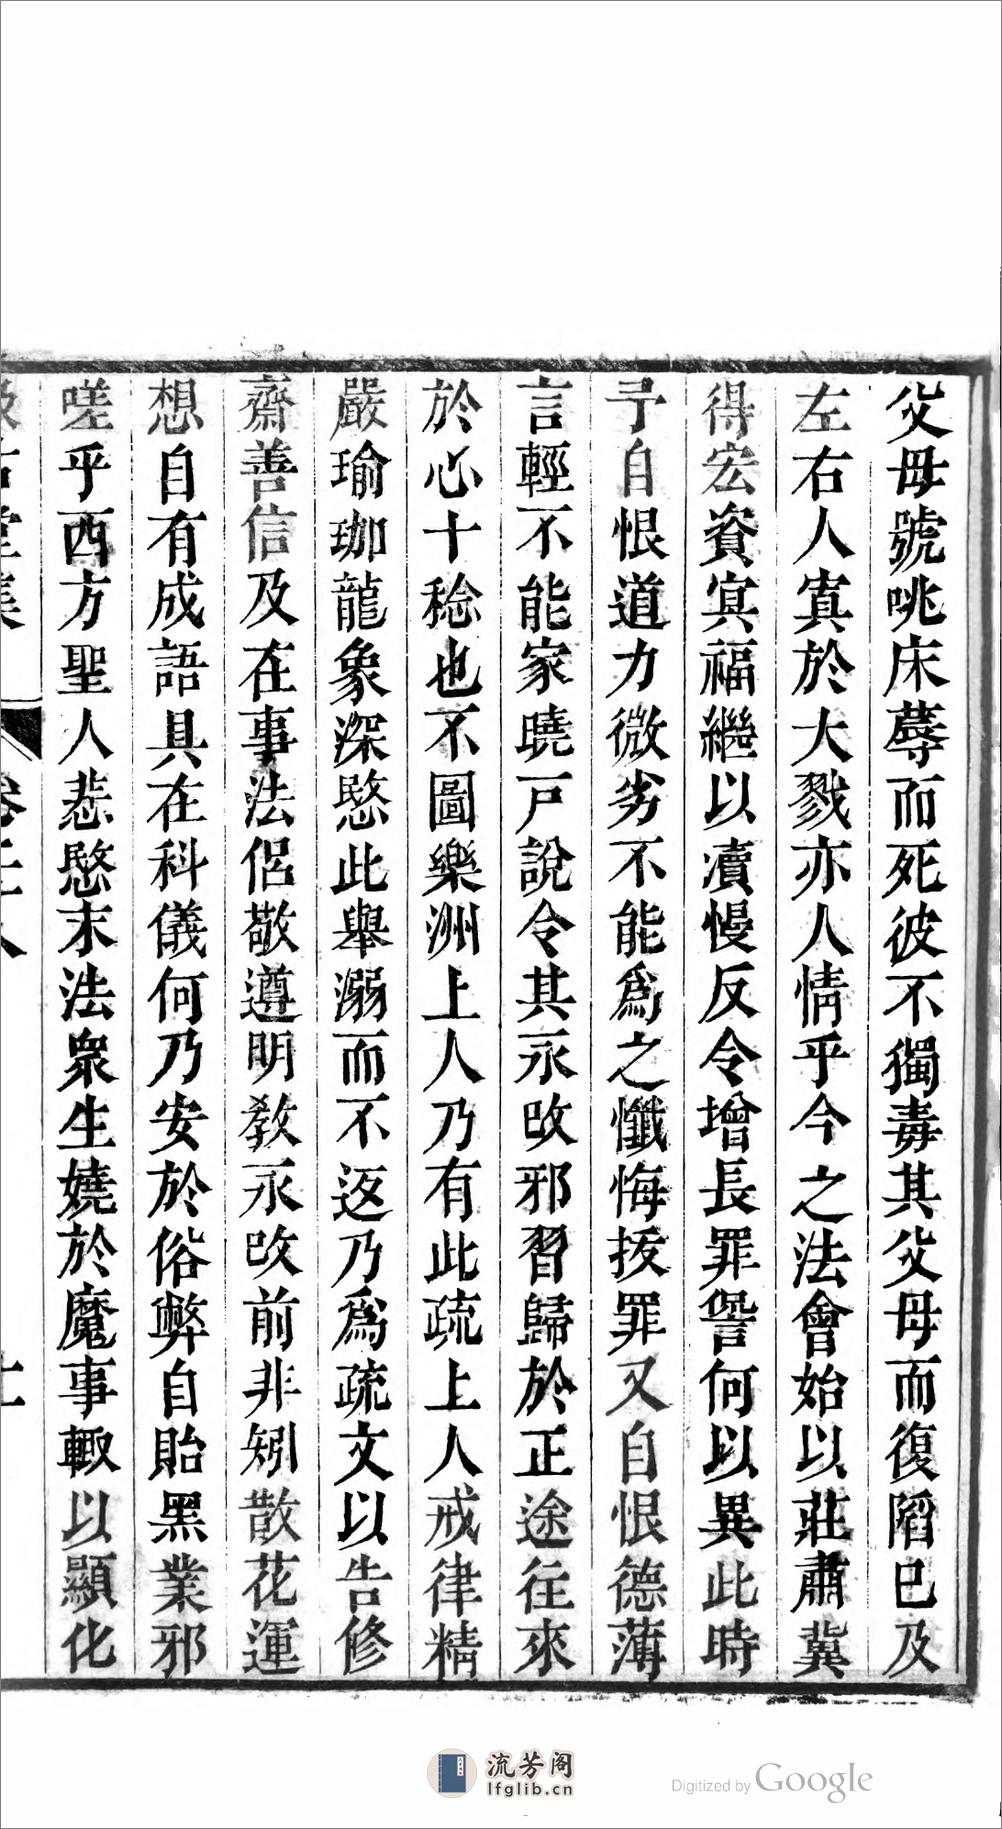 父母號咷床蓐而死彼不獨毒其父母而復陷已及
左右人寘於大戮亦人情乎今之法會始以莊肅冀
得宏資冥福繼以瀆慢反令增長罪眚何以異此時
予自恨道力微劣不能爲之懺悔拔罪又自恨德薄
言輕不能家曉戸說令其永改邪習歸於正途往來
於心十稔也不圖樂洲上人乃有此疏上人戒律精
嚴瑜珈龍象深愍此舉溺而不返乃爲疏文以告修
齋善信及在事法侶敬遵明教永改前非矧散花運
想自有成語具在科儀何乃安於俗弊自貽黑業邪
嗟乎西方聖人悲愍末法衆生嬈於魔事輙以顯化
流芳阁
lfglib.cn
Digitized by Google